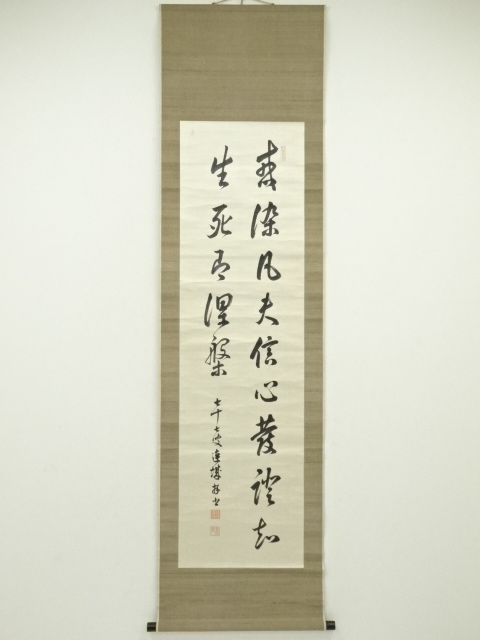 惑染凡夫信心發證知
生死即涅槃
七十七叟